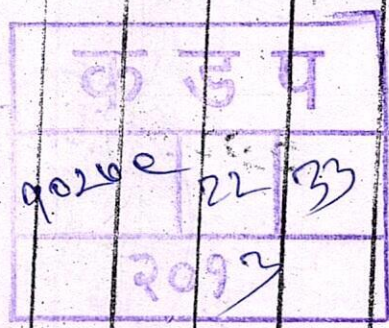 क ड प
१०२७९ २२ ३३
२०१३